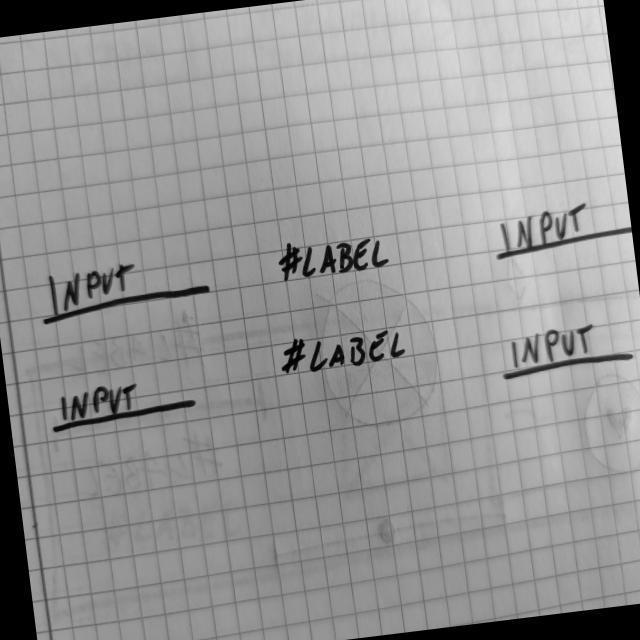 INPUT #LABEL INPUT
INPUT #LABEL INPUT